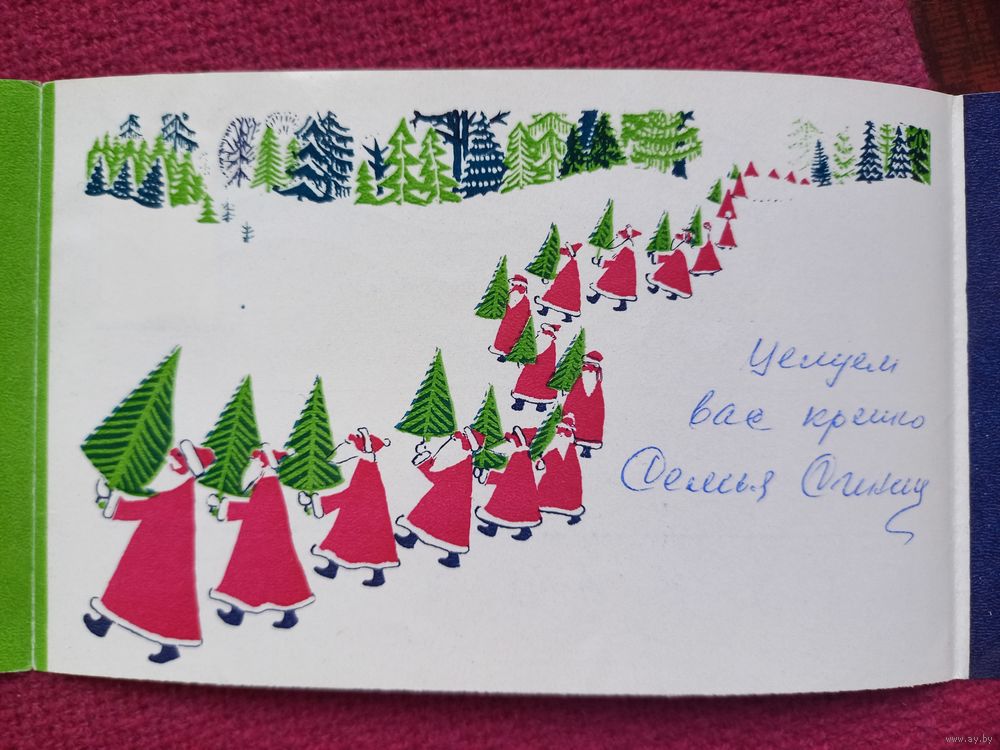 Целуем
вас крепко
Семья
www.ay.by